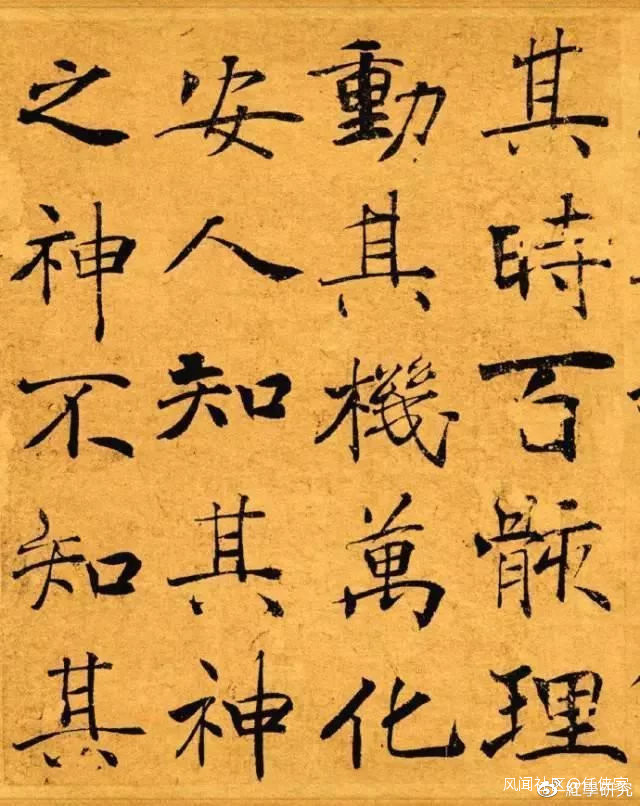 其時百骸理
動其機萬化
安人知其神
之神不知其
风闻社区@任佳
紅學研究